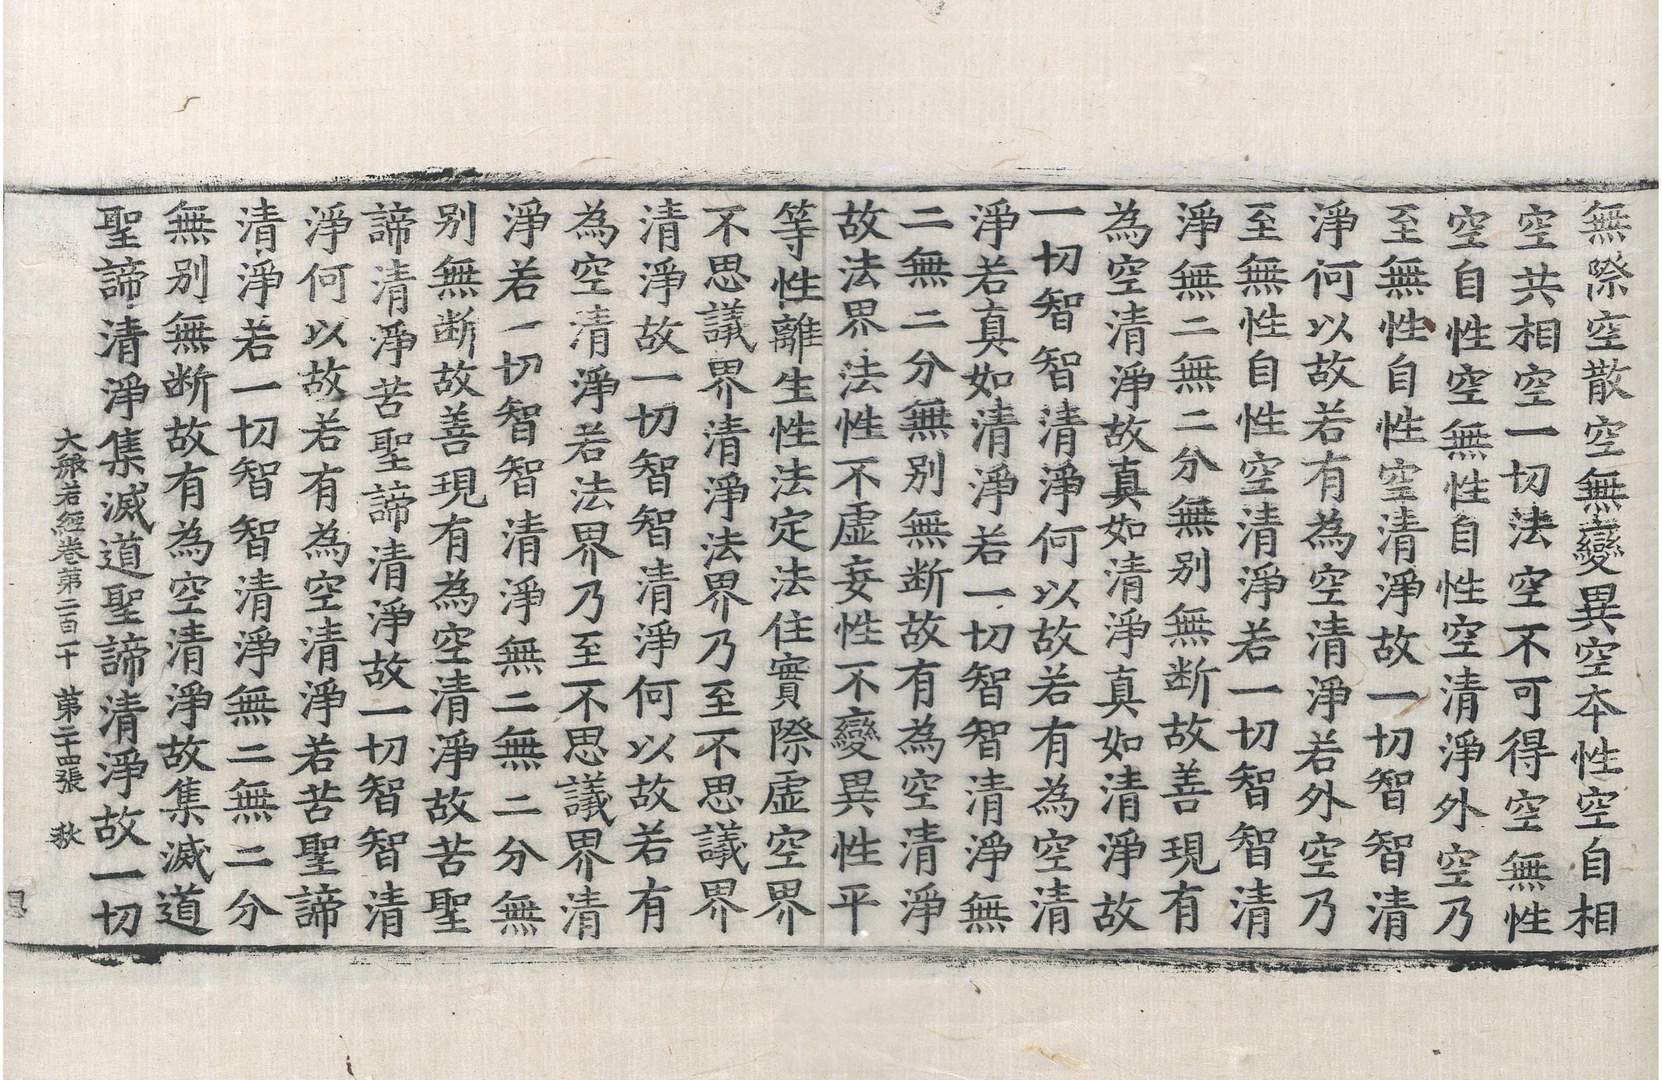 無際空散空無變異空本性空自相
空共相空一切法空不可得空無性
空自性空無性自性空清淨外空乃
至無性自性空清淨故一切智智清
淨何以故若有為空清淨若外空乃
至無性自性空清淨若一切智智清
淨無二無二分無別無断故善現有
為空清淨故真如清淨真如清淨故
一切智智清淨何以故若有為空清
淨若真如清淨若一切智智清淨無
二無二分無別無断故有為空清淨
故法界法性不虛妄性不變異性平
等性離生性法定法住實際虛空界
不思議界清淨法界乃至不思議界
清淨故一切智智清淨何以故若有
為空清淨若法界乃至不思議界清
淨若一切智智清淨無二無二分無
別無断故善現有為空清淨故苦聖
諦清淨苦聖諦清淨故一切智智清
淨何以故若有為空清淨若苦聖諦
清淨若一切智智清淨無二無二分
無別無断故有為空清淨故集滅道
聖諦清淨集滅道聖諦清淨故一切
大般若經卷第二百二十 第二十四張 秋